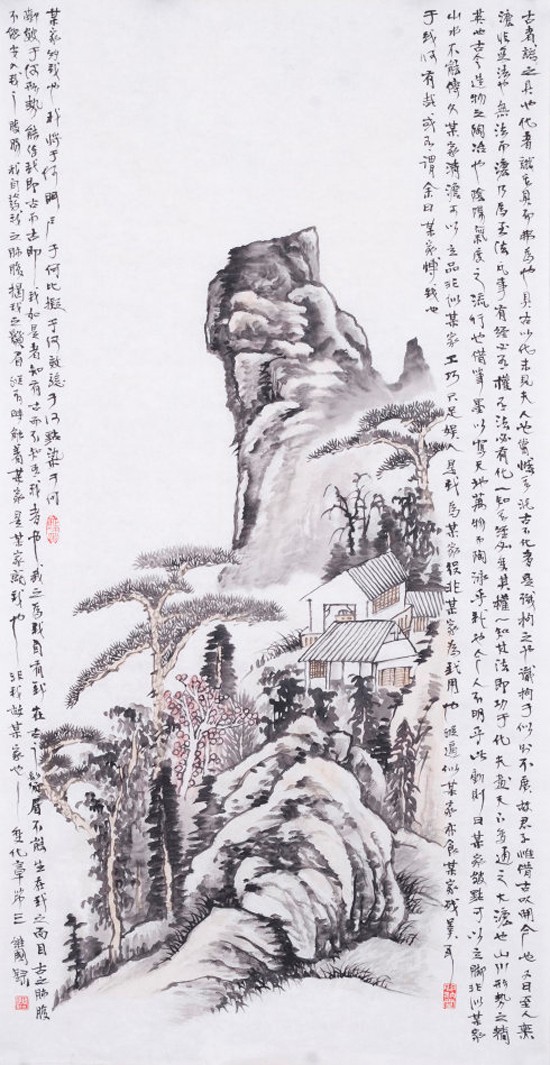 古者識之具也化者識其具而弗為也具古以化未見夫人也嘗憾其泥古不化者是識拘之也識拘于似則不廣故君子惟借古以開今也又曰至人無
法非無法也無法而法乃為至法凡事有經必有權有法必有化一知其經即變其權一知其法即功于化夫畫天下變通之大法也山川形勢之精
英也古今造物之陶冶也陰陽氣度之流行也借筆墨以寫天地萬物而陶泳乎我也今人不明乎此動則曰某家皴點可以立腳非似某家
山水不能傳久某家清澹可以立品非似某家工巧只足娛人是我為某家役非某家為我用也縱逼似某家亦食某家殘羹耳
于我何有哉或有謂余曰某家博我也
某家約我也我將于何門戶于何比擬于何效驗于何點染于何
鞟皴于何形勢能使我即古而古即我如是者知有古而不知有我者也我之為我自有我在古之鬚眉不能生在我之面目古之肺腑
不能安入我之腹腸我自發我之肺腑揭我之鬚眉縱有時觸著某家是某家就我也非我故某家也變化章第三